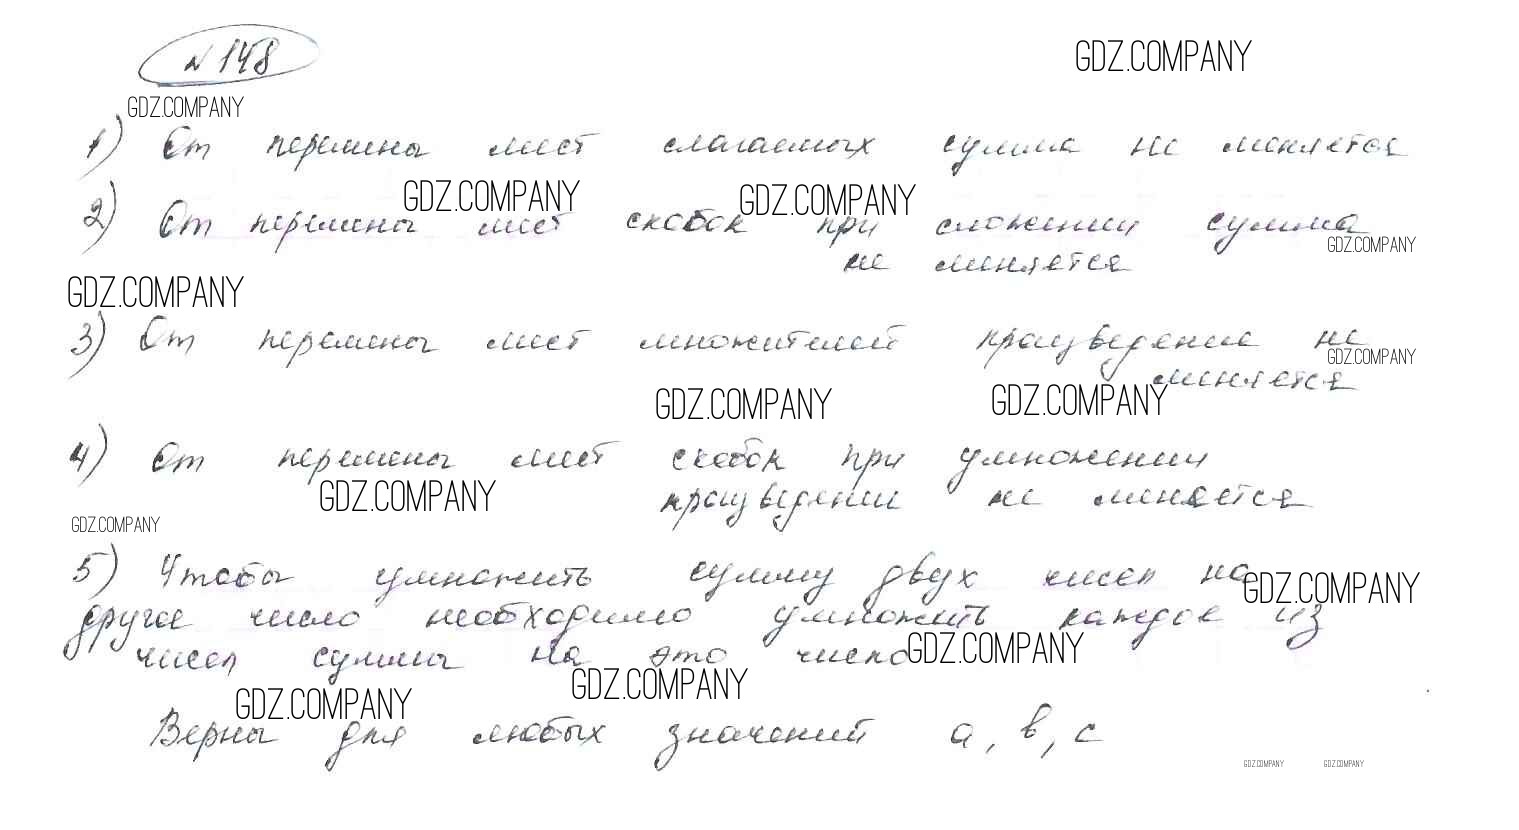 №148
GDZ.COMPANY
GDZ.COMPANY
1) От перемены мест слагаемых сумма не меняется
GDZ.COMPANY GDZ.COMPANY
2) От перемены мест скобок при сложении сумма
GDZ.COMPANY
не меняется
GDZ.COMPANY
3) От перемены мест множителей произведение не
GDZ.COMPANY
меняется
GDZ.COMPANY GDZ.COMPANY
4) От перемены мест скобок при умножении
GDZ.COMPANY
произведении не меняется
GDZ.COMPANY
5) Чтобы умножить сумму двух чисел на
GDZ.COMPANY
другое число необходимо умножить каждое из
GDZ.COMPANY
чисел суммы на это число
GDZ.COMPANY
GDZ.COMPANY
Верны для любых значений a, b, c
GDZ.COMPANY GDZ.COMPANY